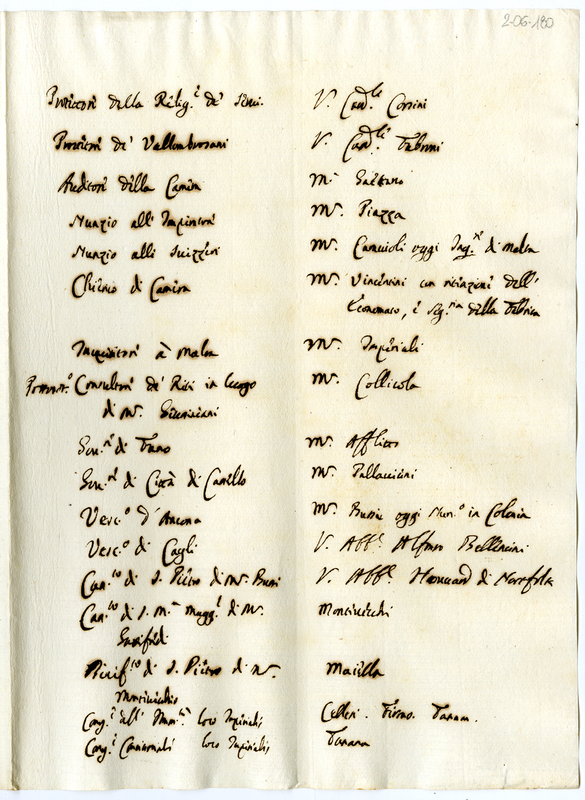 2-06-180
Protettori della Relig.e de' Servi. V. Card.le Corsini
Protettore de' Vallombrosani V. Card.le Fabroni
Auditore della Camera M.r Gaetano
Nunzio all' Imperatore M.r Piazza
Nunzio alli Suizzeri M.r Caraccioli oggi Inq.re di Malta
Chierico di Camera M.r Vincentini con ritenzione dell'
Economato, e Seg.ria della Fabrica
Inquisitore à Malta M.r Imperiali
Consultore de' Riti in luogo M.r Collicola
di M.r Giustiniani
Gov.re di Fano M.r Afflitto
Gov.re di Città di Castello M.r Pallavicini
Vesc.o d'Ancona M.r Bussi oggi Nun.o in Colonia
Vesc.o di Cagli V. Abb.e Alfonso Bellincini
Can.to di S. Pietro di M.r Bussi V. Abb.e Howard di Norfolk
Can.to di S. M.a Magg.e di M.r Montevecchi
Benif.to di S. Pietro di M.r Maiella
Montevecchio
Cong.e dell' Imm.tà loco Imperialis
Cong.e Concistoriali loco Imperialis